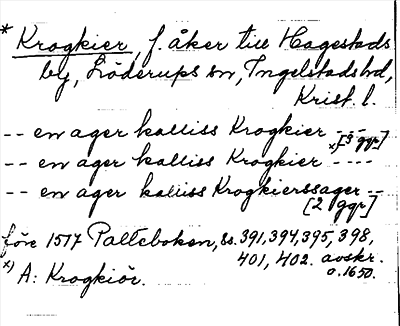 * Krogkier, f. åker till Hagestads
by, Löderups sn, Ingelstads hd,
Krist. l.
-- en ager kalliss Krogkier - x)[3 ggr]
-- en ager kalliss Krogkier ----
-- en ager kaliiss Krogkierssager --
[2 ggr]
före 1517 Palteboken, ss. 391, 394, 395, 398,
401, 402. avskr.
o. 1650.
x) A: Krogkiör.